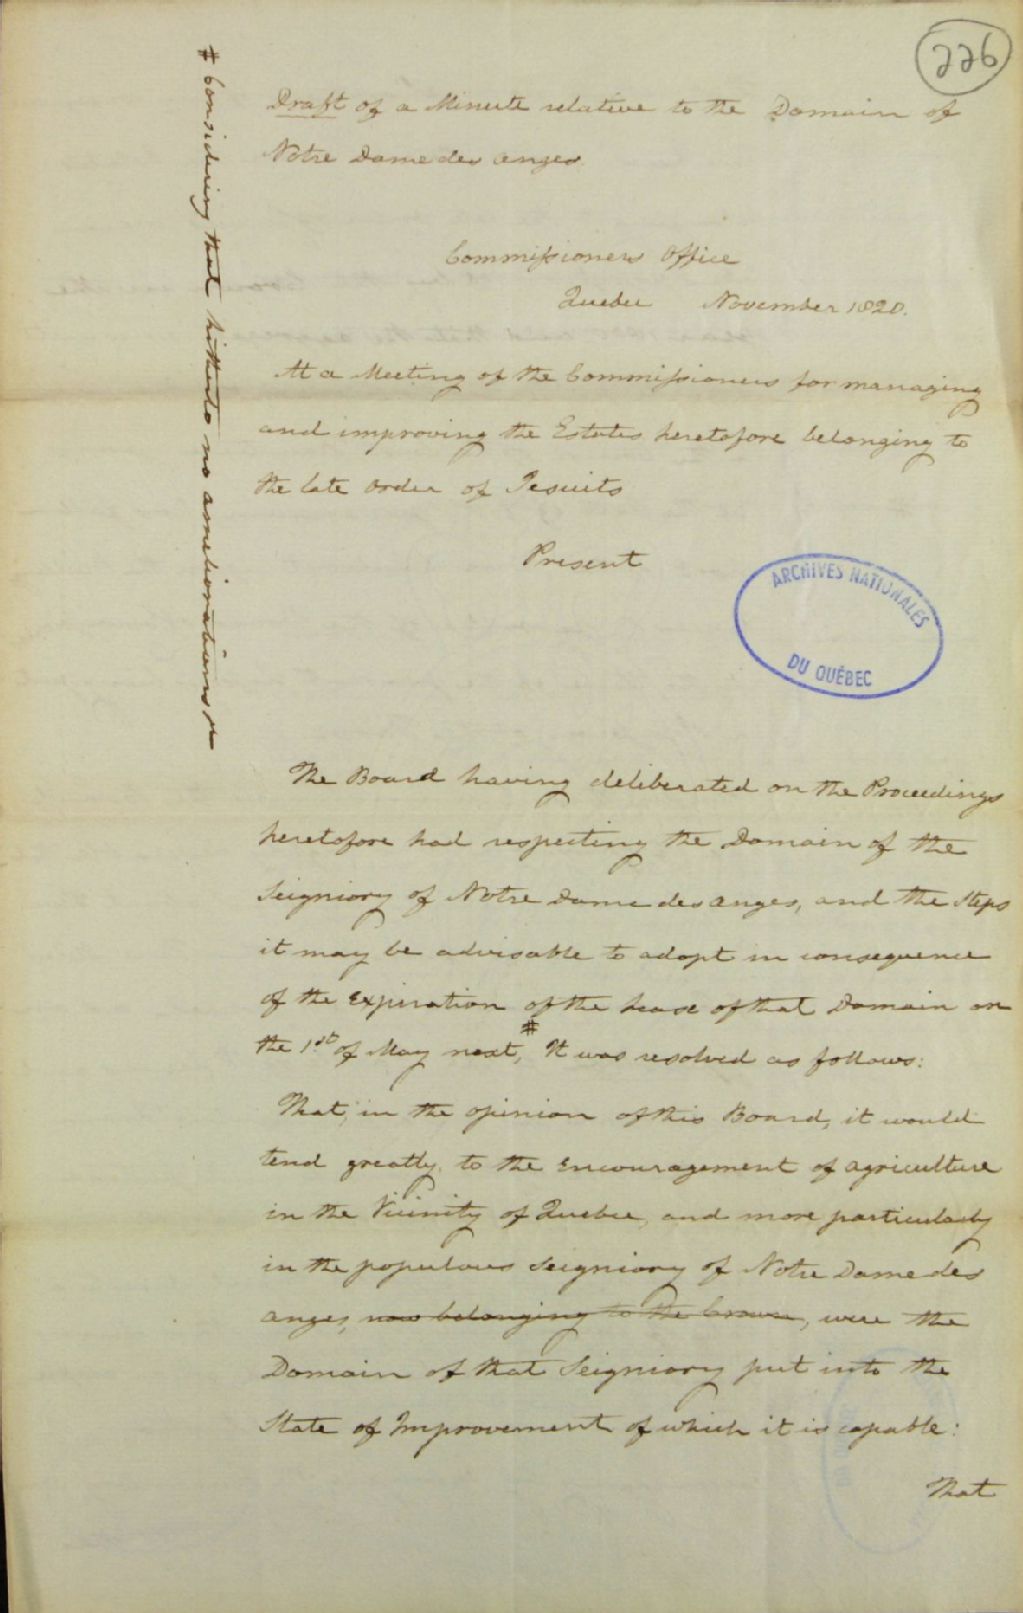 226
Draft of a Minute relative to the Domain of
Notre Dame des anges
Commissioners Office
Quebec November 1820.
At a Meeting of the Commissioners for managing
and improving the Estates heretofore belonging to
the late Order of Jesuits
Present
ARCHIVES NATIONALES
DU QUÉBEC
The Board having deliberated on the Proceedings
heretofore had respecting the Domain of the
Seigniory of Notre Dame des anges, and the Steps
it may be advisable to adopt in consequence
of the Expiration of the Lease of that Domain on
the 1st of May next, # It was resolved as follows:
That, in the opinion of this Board, it would
tend greatly to the Encouragement of agriculture
in the Vicinity of Quebec, and more particularly
in the populous Seigniory of Notre Dame des
anges, now belonging to the Crown, were the
Domain of that Seigniory put into the
State of Improvement of which it is capable:
That
# Considering that hitherto no ameliorations